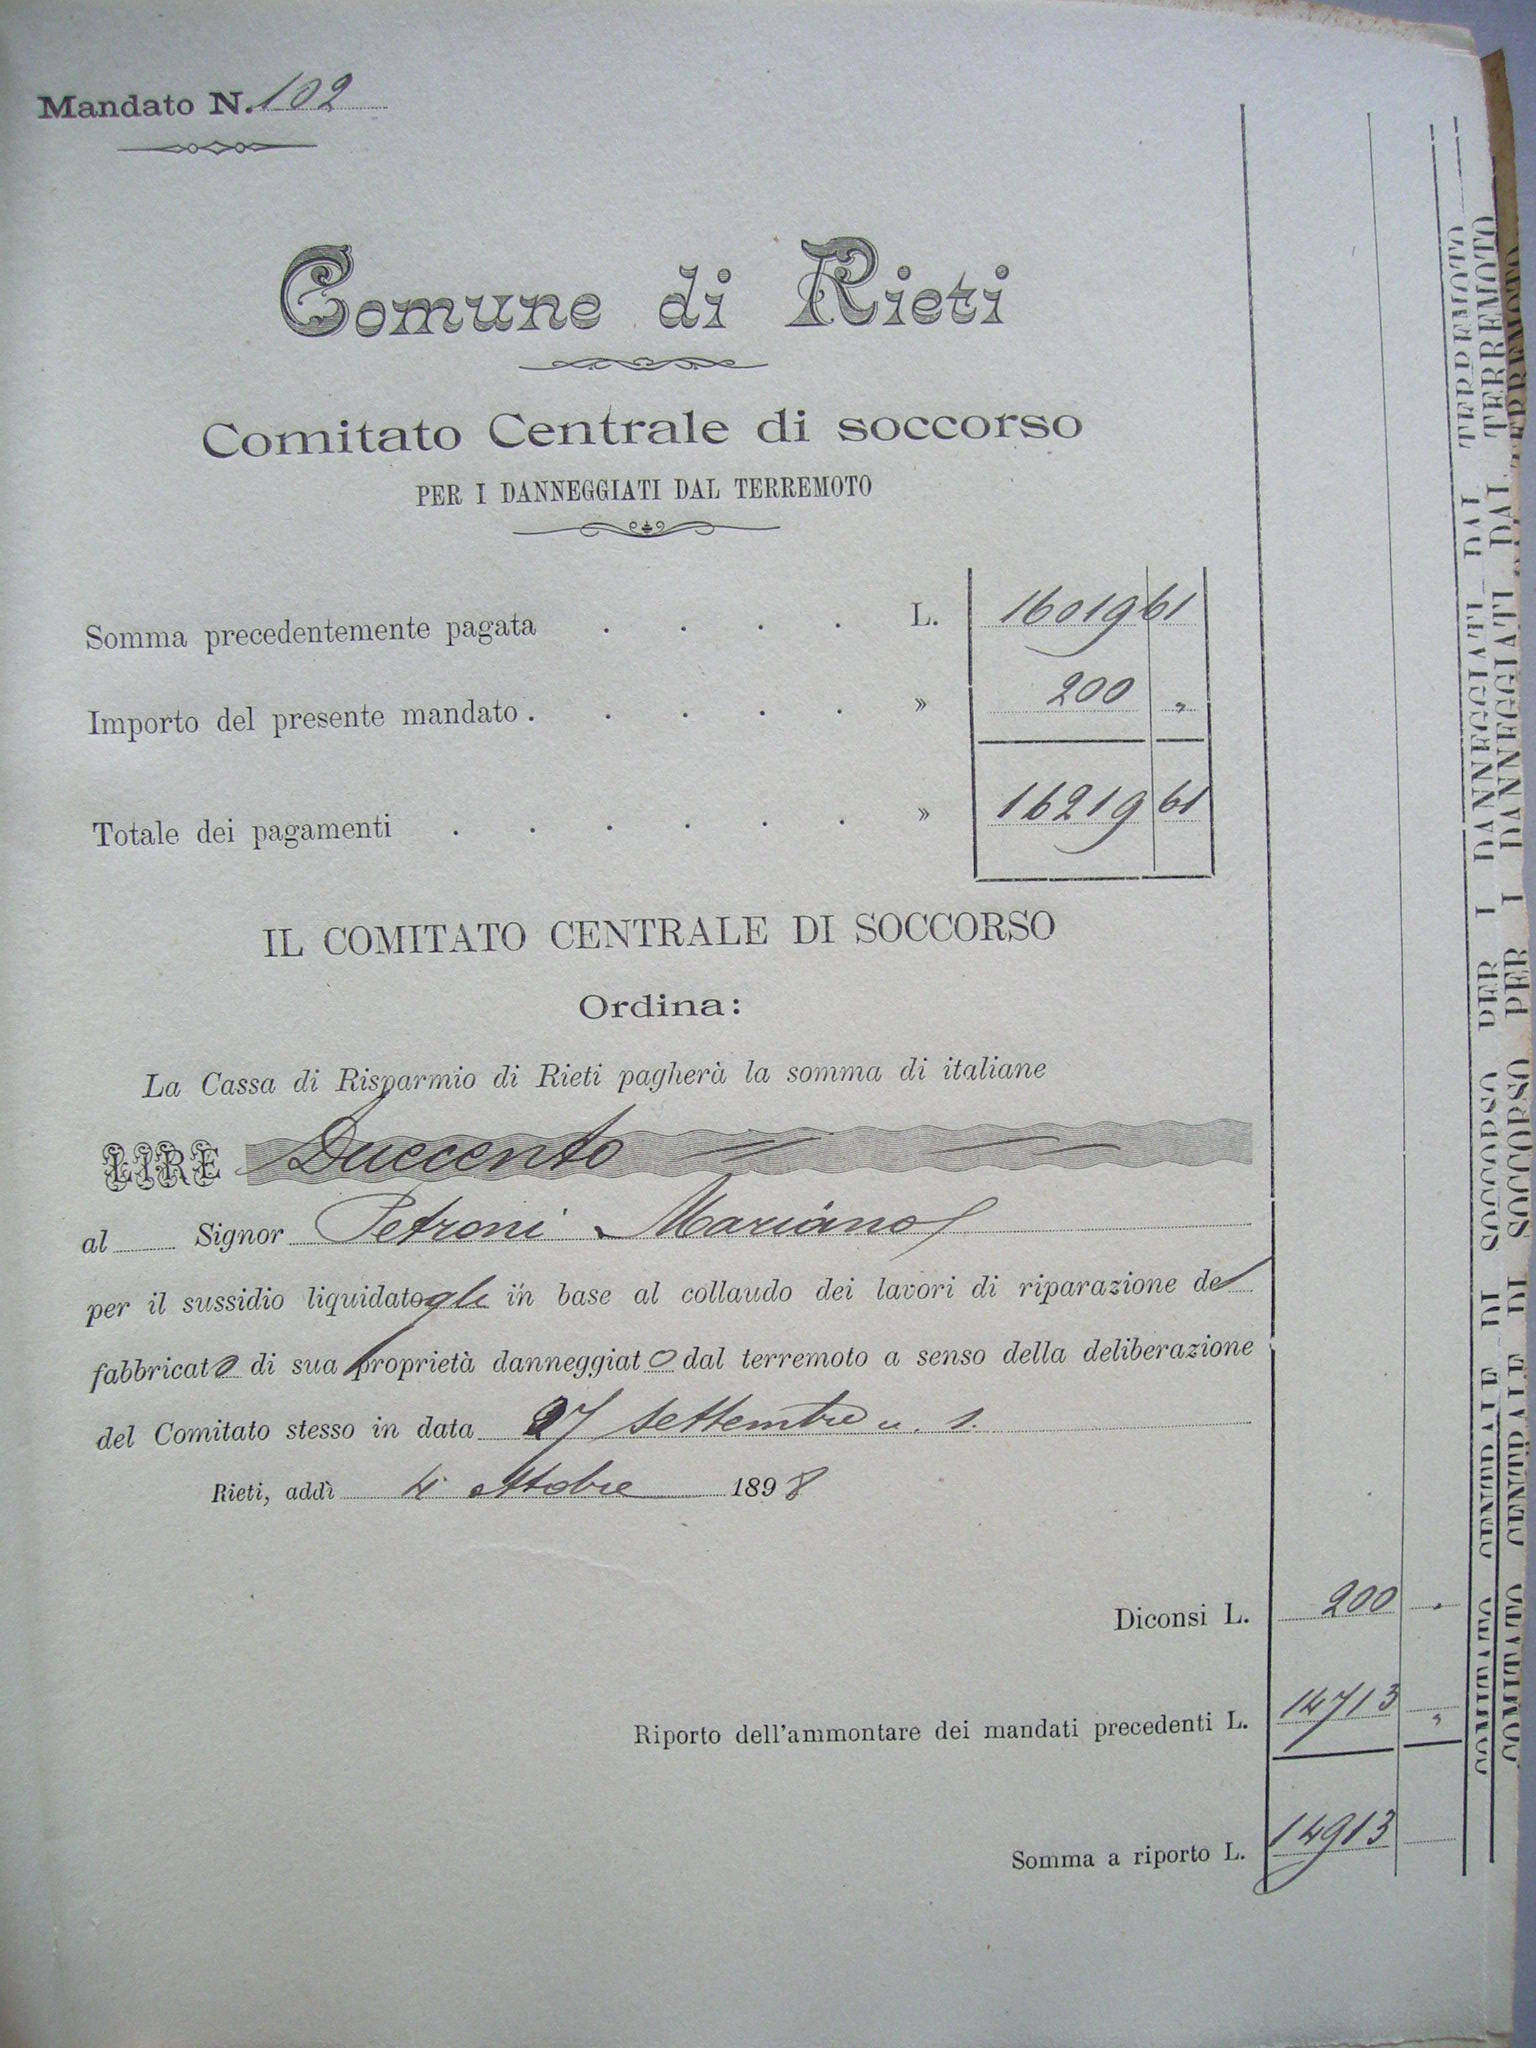 Mandato N. 102
Comune di Rieti
Comitato Centrale di soccorso
PER I DANNEGGIATI DAL TERREMOTO
Somma precedentemente pagata . . . . L. 16019 61
Importo del presente mandato . . . . . » 200 „
Totale dei pagamenti . . . . . . » 16219 61
IL COMITATO CENTRALE DI SOCCORSO
Ordina:
La Cassa di Risparmio di Rieti pagherà la somma di italiane
LIRE Duecento
al Signor Petroni Mariano
per il sussidio liquidatogli in base al collaudo dei lavori di riparazione del
fabbricato di sua proprietà danneggiato dal terremoto a senso della deliberazione
del Comitato stesso in data 27 settembre u. s.
Rieti, addì 4 Ottobre 1898
Diconsi L. 200 „
Riporto dell'ammontare dei mandati precedenti L. 14713 „
Somma a riporto L. 14913
COMITATO CENTRALE DI SOCCORSO PER I DANNEGGIATI DAL TERREMOTO
COMITATO CENTRALE DI SOCCORSO PER I DANNEGGIATI DAL TERREMOTO
TERREMOTO